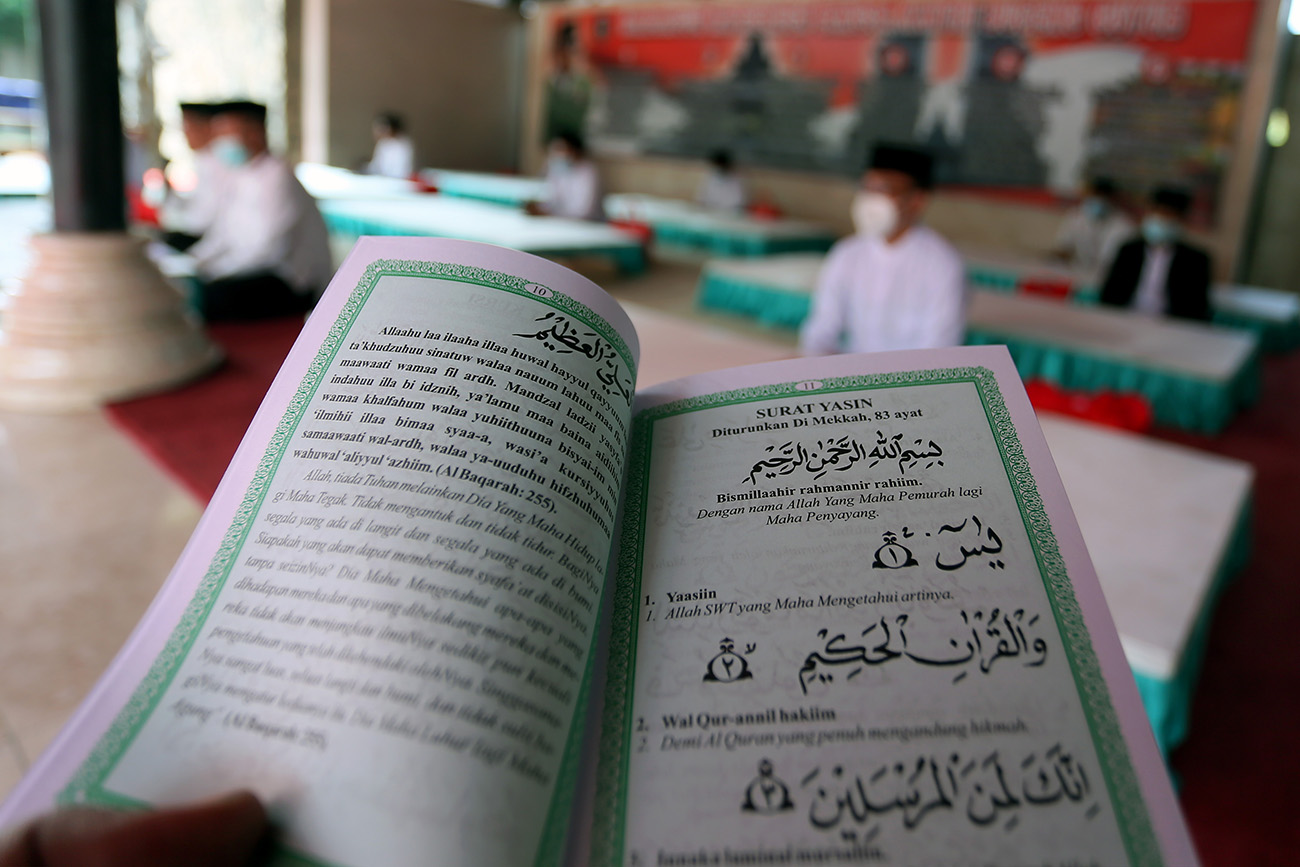 10
العَلِيُّ العَظِيْمُ
Allaahu laa ilaaha illaa huwal hayyul qayyuu
ta'khudzuhuu sinatuw walaa nauum lahuu maa fis
maawaati wamaa fil ardh. Mandzal ladzii yasyfa'u
indahuu illa bi idznih, ya'lamu maa baina aidiihim
wamaa khalfahum walaa yuhiithuuna bisyai-im min
'ilmihii illaa bimaa syaa-a, wasi'a kursiyyuhus
samaawaati wal-ardh, walaa ya-uuduhu hifzhuhumaa
wahuwal 'aliyyul 'azhiim. (Al Baqarah: 255).
Allah, tiada Tuhan melainkan Dia Yang Maha Hidup la
gi Maha Tegak. Tidak mengantuk dan tidak tidur. BagiNya
segala yang ada di langit dan segala yang ada di bumi.
Siapakah yang akan dapat memberikan syafa'at disisiNya,
tanpa seizinNya? Dia Maha Mengetahui apa-apa yang
dihadapan mereka dan apa yang dibelakang mereka dan me
reka tidak akan menjangkau ilmuNya sedikit pun kecuali
pengetahuan yang telah dikehendaki olehNya. Singgasana
Nya sangat luas, seluas langit dan bumi, dan tidak sulit ba
giNya mengatur keduanya itu. Dia Maha Luhur lagi Maha
Agung". (Al Baqarah: 255).
11
SURAT YASIN
Diturunkan Di Mekkah, 83 ayat
بِسْمِ اللهِ الرَّحْمٰنِ الرَّحِيْمِ
Bismillaahir rahmannir rahiim.
Dengan nama Allah Yang Maha Pemurah lagi
Maha Penyayang.
يٰسٓ ۞ ١
1. Yaasiin
1. Allah SWT yang Maha Mengetahui artinya.
وَالْقُرْاٰنِ الْحَكِيْمِ ٢
2. Wal Qur-annil hakiim
2. Demi Al Quran yang penuh mengandung hikmah.
اِنَّكَ لَمِنَ الْمُرْسَلِيْنَ ٣
Innaka laminal mursaliin.